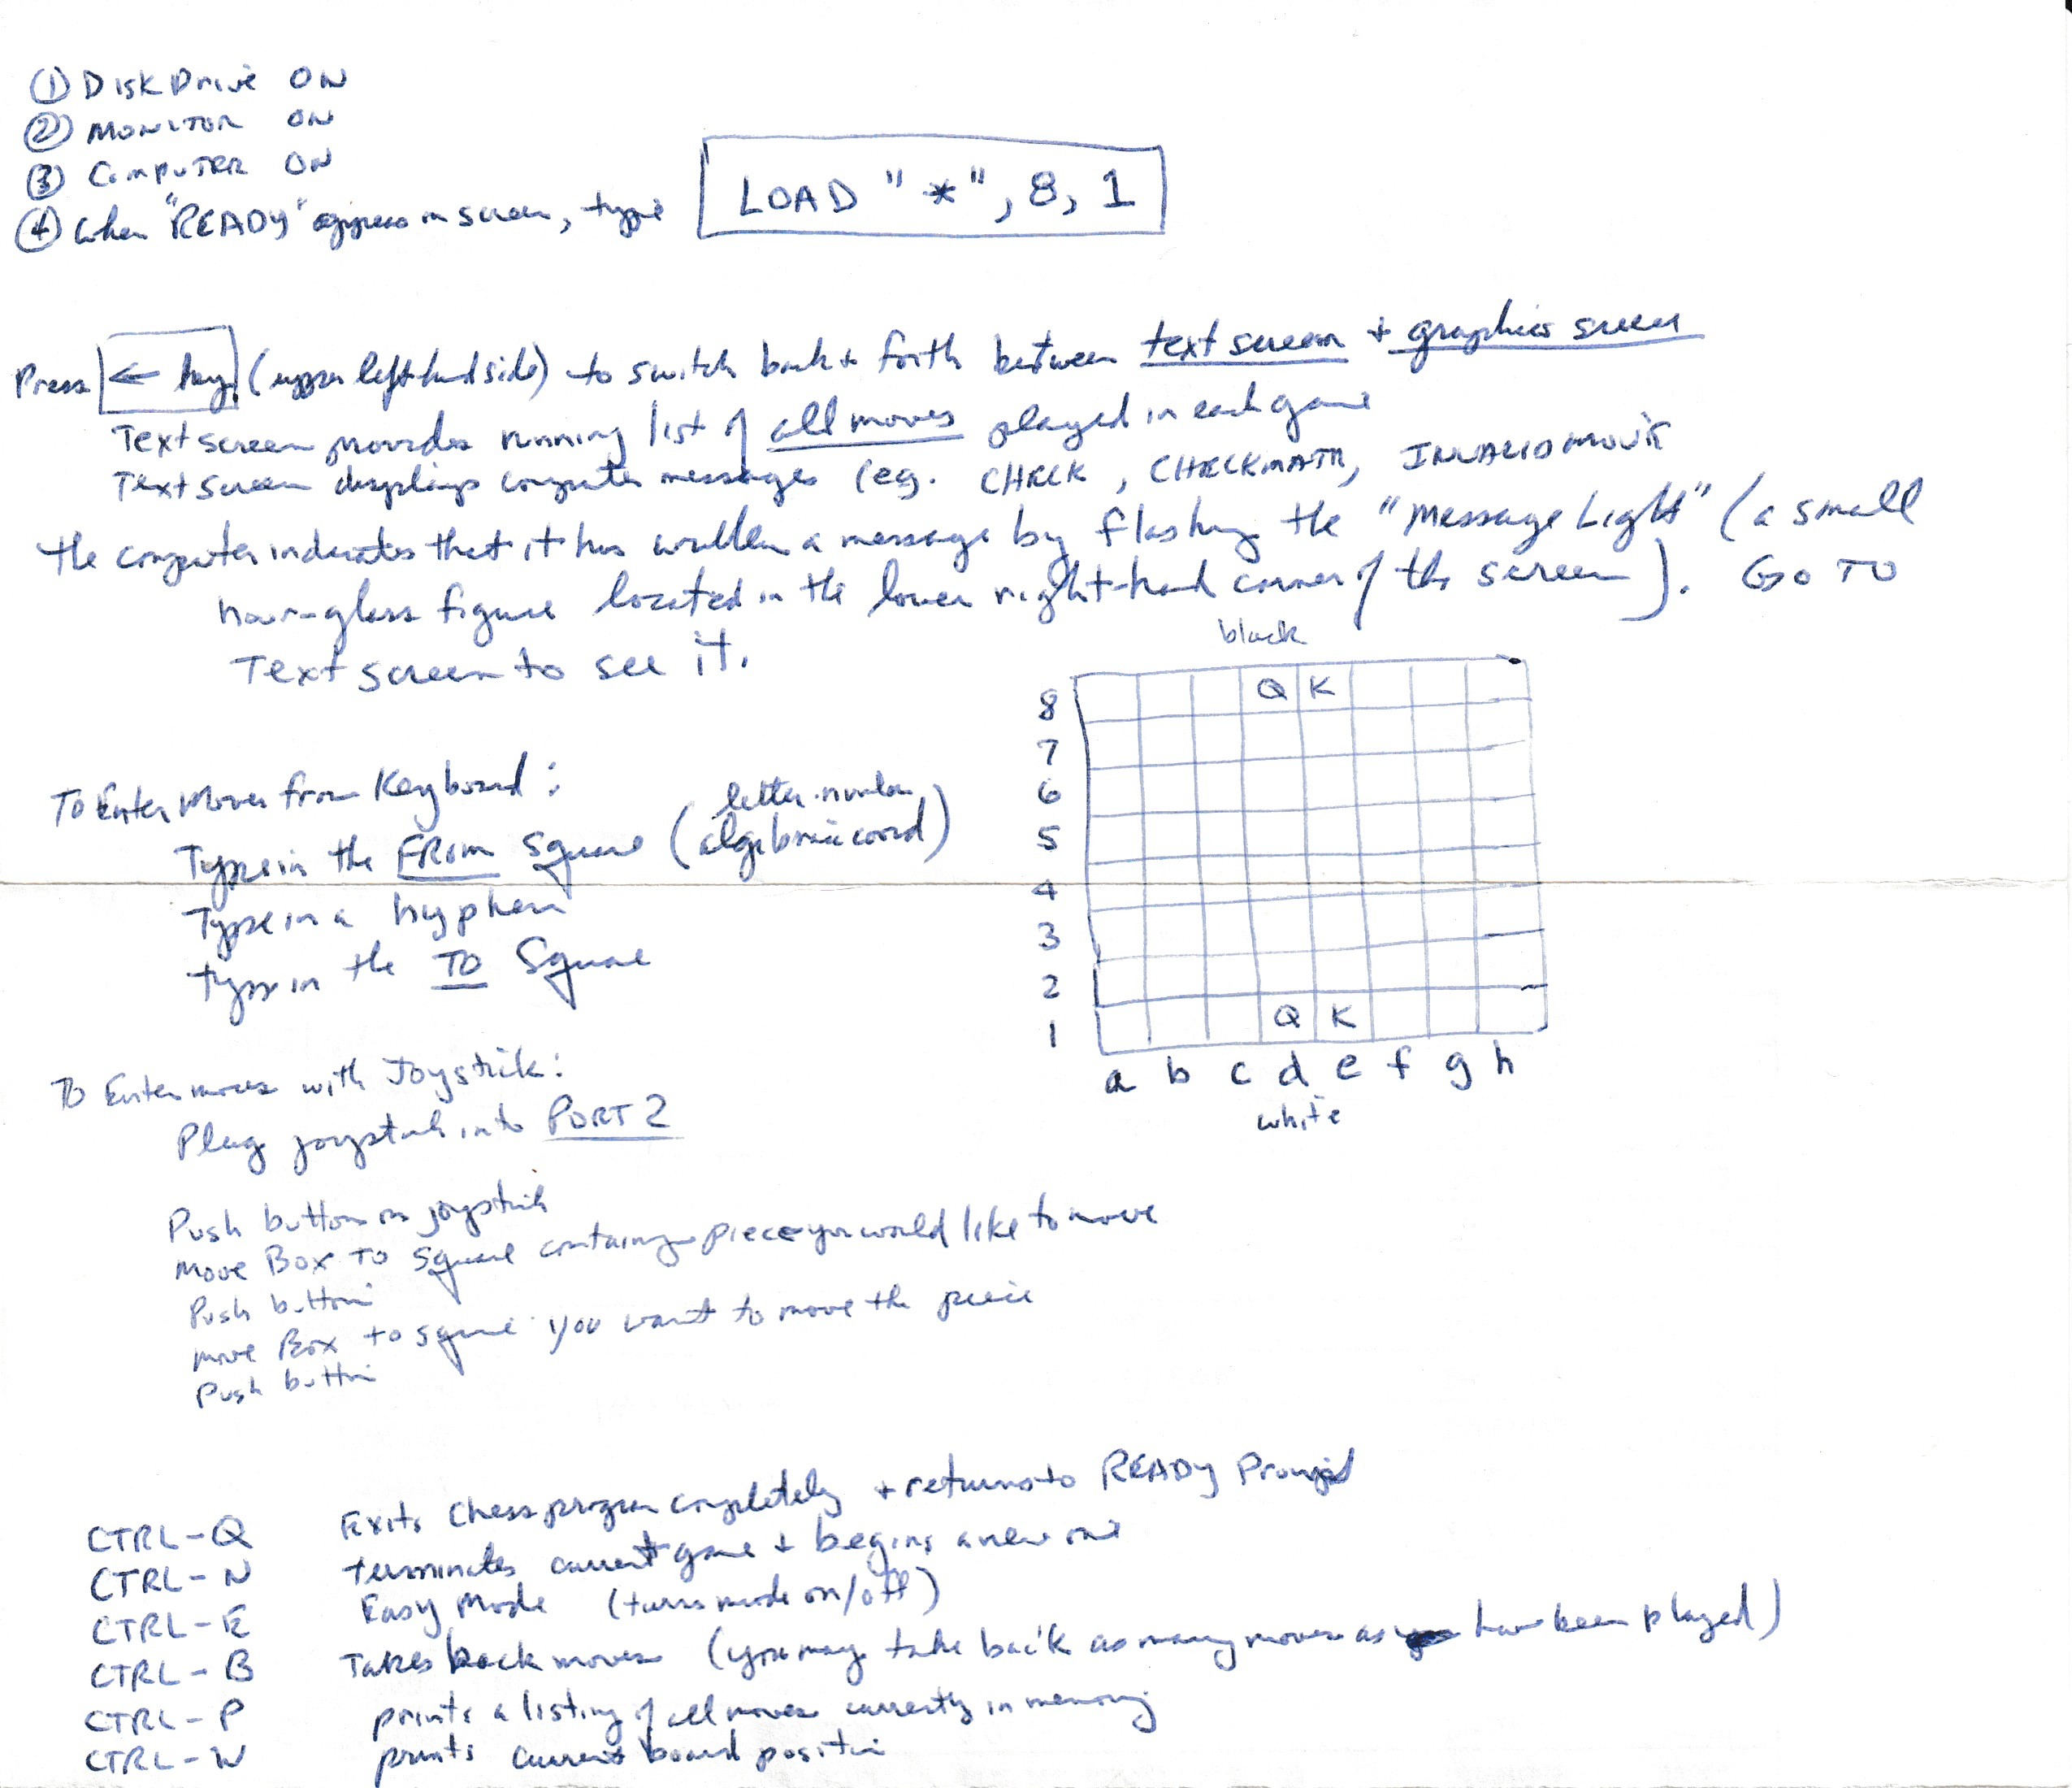 ① Disk Drive ON
② MONITOR ON
③ COMPUTER ON
④ When "READY" appears on screen, type
LOAD "*",8,1
Press ← key (upper left hand side) to switch back + forth between text screen + graphics screen
Text screen provides running list of all moves played in each game
Text screen displays computer messages (eg. CHECK, CHECKMATE, INVALID MOVE
the computer indicates that it has written a message by flashing the "Message Light" (a small
hour-glass figure located in the lower right-hand corner of the screen). Go TO
Text screen to see it.
black
8 Q K
7
6
5
4
3
2
1 Q K
a b c d e f g h
white
To Enter Moves from Keyboard:
letter-number
Type in the FROM Square (algebraic coord)
Type in a hyphen
type in the TO Square
To Enter moves with Joystick:
Plug joystick into PORT 2
Push button on joystick
Move Box to square containing piece you would like to move
Push button
move Box to square you want to move the piece
Push button
CTRL-Q Exits Chess program completely + returns to READY Prompt
CTRL-N terminates current game + begins a new one
CTRL-E Easy Mode (turns mode on/off)
CTRL-B Takes back moves (you may take back as many moves as have been played)
CTRL-P prints a listing of all moves currently in memory
CTRL-W prints current board position